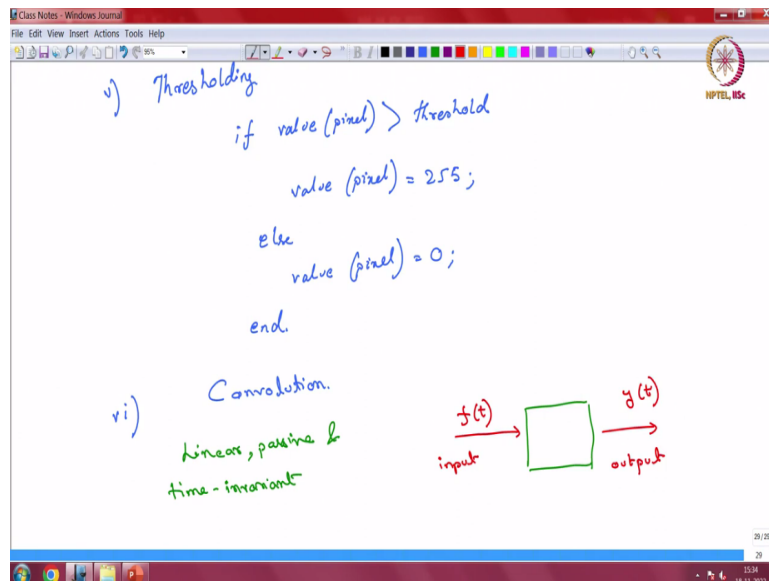 Class Notes - Windows Journal
File Edit View Insert Actions Tools Help
95%
B I
NPTEL, IISc
v) Thresholding
if value (pixel) > threshold
value (pixel) = 255;
else
value (pixel) = 0;
end.
vi) Convolution.
Linear, passive &
time-invariant
f(t)
input
y(t)
output
29/29
29
15:34